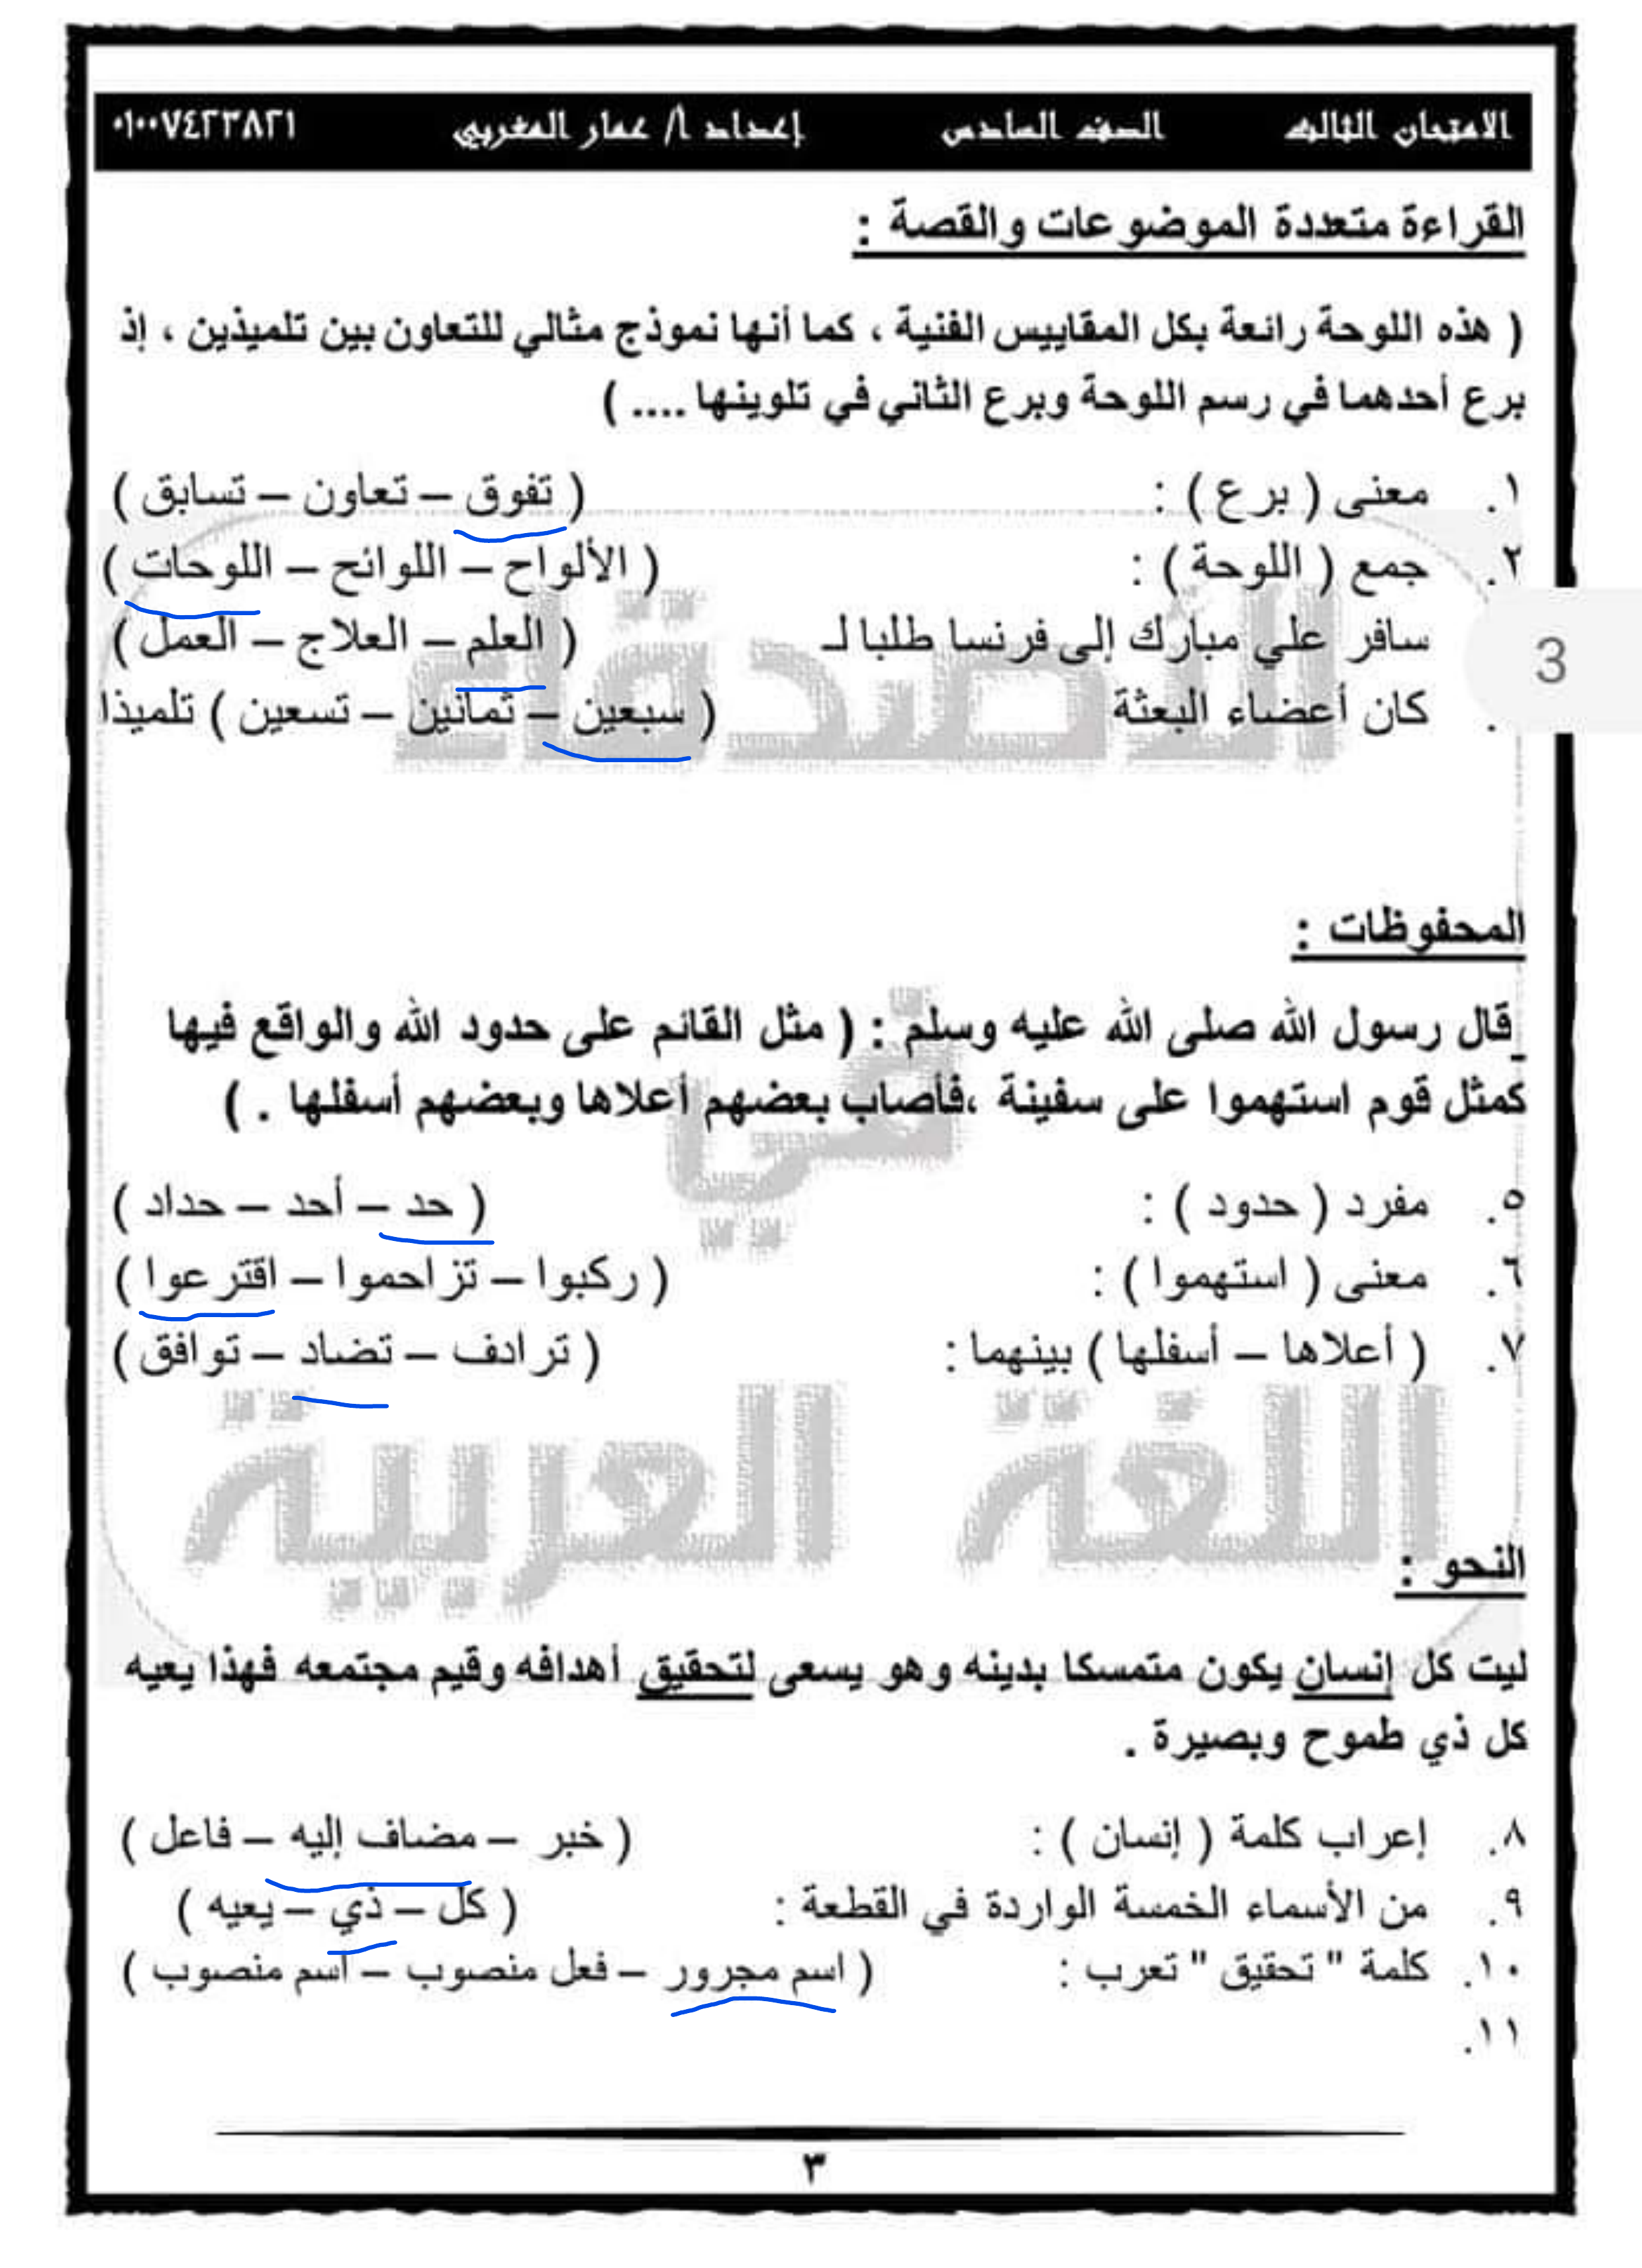 الامتحان الثالث الصف السادس إعداد أ/ عمار المغربي ٠١٠٠٧٤٢٣٨٢١
القراءة متعددة الموضوعات والقصة :
( هذه اللوحة رائعة بكل المقاييس الفنية ، كما أنها نموذج مثالي للتعاون بين تلميذين ، إذ
برع أحدهما في رسم اللوحة وبرع الثاني في تلوينها .... )
١. معنى ( برع ) : ( تفوق – تعاون – تسابق )
٢. جمع ( اللوحة ) : ( الألواح – اللوائح – اللوحات )
سافر علي مبارك إلى فرنسا طلبا لـ ( العلم – العلاج – العمل )
3
. كان أعضاء البعثة ( سبعين – ثمانين – تسعين ) تلميذا
الأصدقاء
المحفوظات :
قال رسول الله صلى الله عليه وسلم : ( مثل القائم على حدود الله والواقع فيها
كمثل قوم استهموا على سفينة ،فأصاب بعضهم أعلاها وبعضهم أسفلها . )
في
٥. مفرد ( حدود ) : ( حد – أحد – حداد )
٦. معنى ( استهموا ) : ( ركبوا – تزاحموا – اقترعوا )
٧. ( أعلاها – أسفلها ) بينهما : ( ترادف – تضاد – توافق )
اللغة العربية
النحو :
ليت كل إنسان يكون متمسكا بدينه وهو يسعى لتحقيق أهدافه وقيم مجتمعه فهذا يعيه
كل ذي طموح وبصيرة .
٨. إعراب كلمة ( إنسان ) : ( خبر – مضاف إليه – فاعل )
٩. من الأسماء الخمسة الواردة في القطعة : ( كل – ذي – يعيه )
١٠. كلمة " تحقيق " تعرب : ( اسم مجرور – فعل منصوب – اسم منصوب )
١١.
٣